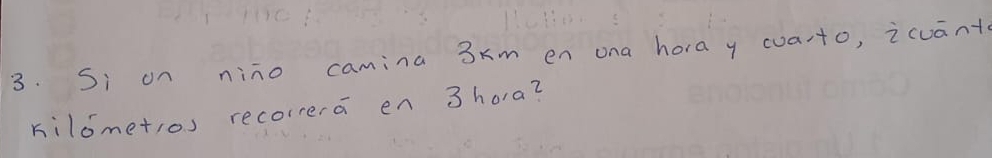 3. Si un niño camina 3Km en una hora y cuarto, ¿cuánto
Kilómetros recorrerá en 3 hora?